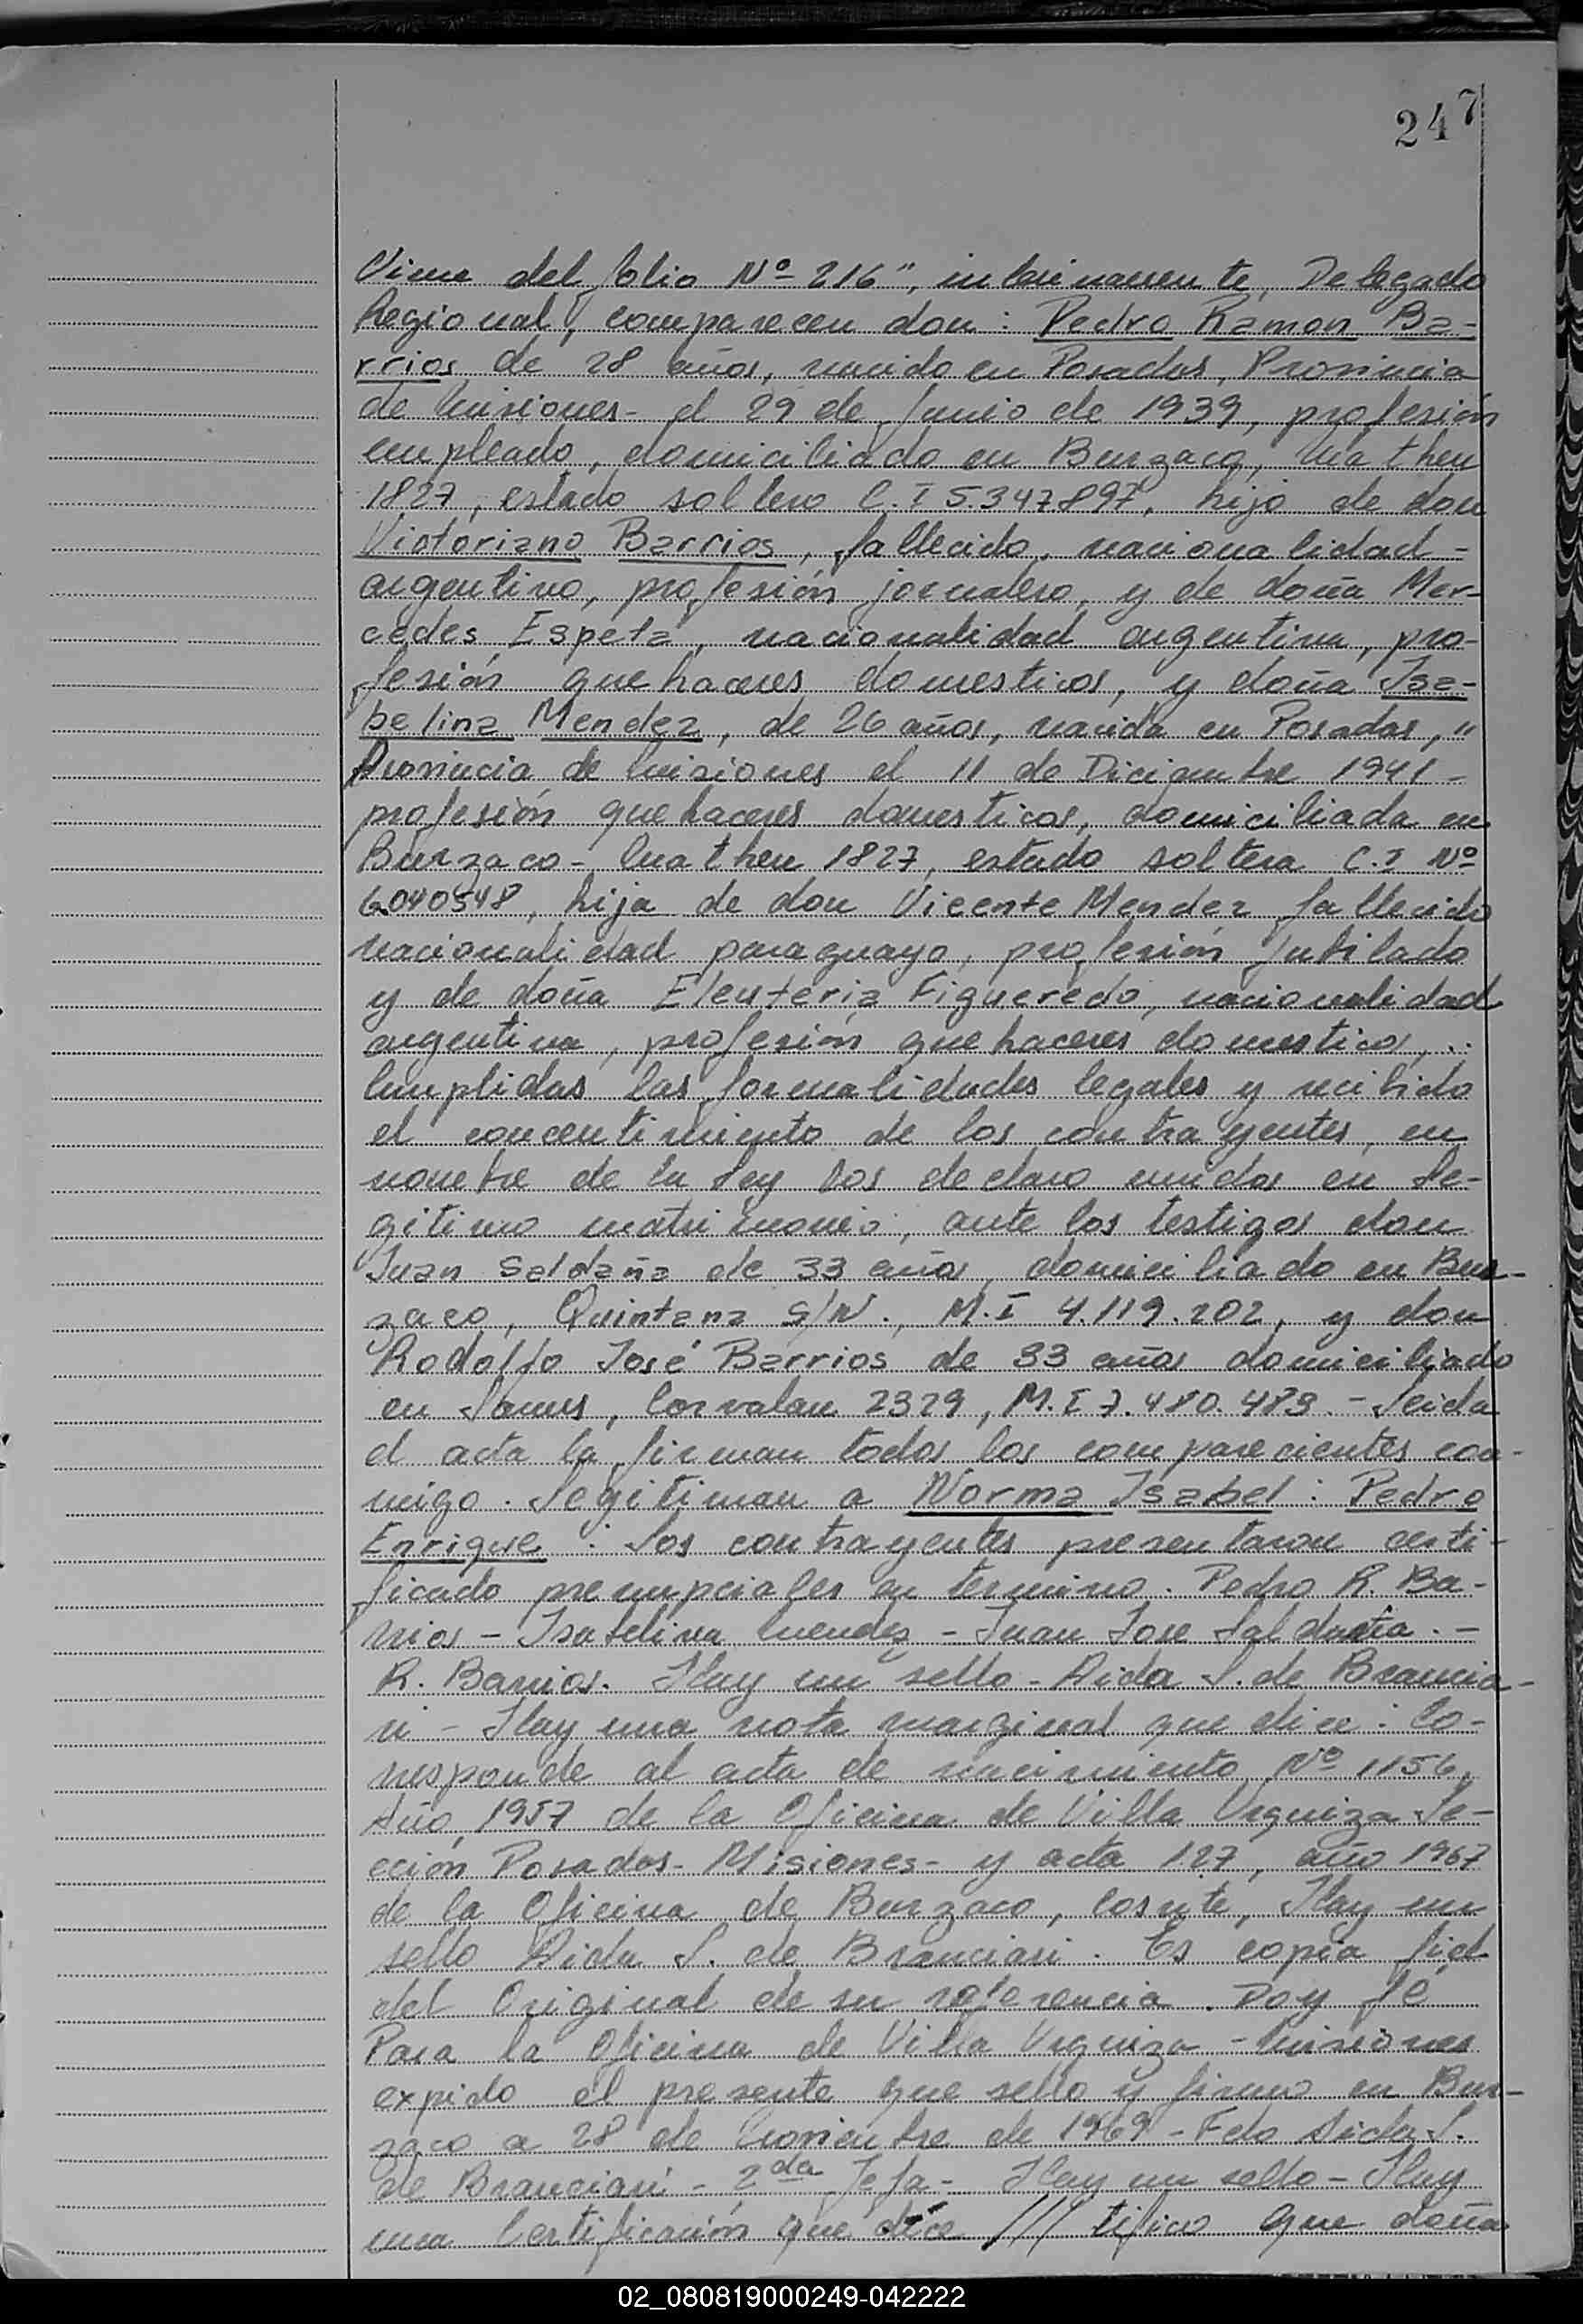 247
Viene del folio Nº 216", interinamente, Delegado
Regional, comparecen don: Pedro Ramon Ba-
rrios de 28 años, nacido en Posadas, Provincia
de Misiones - el 29 de Junio de 1939, profesión
empleado, domiciliado en Burzaco, Matheu
1827, estado soltero C.I 5.347897, hijo de don
Victoriano Barrios, fallecido, nacionalidad -
argentino, profesión jornalero, y de doña Mer-
cedes Espeta, nacionalidad argentina, pro-
fesión quehaceres domesticos, y doña Isa-
belina Mendez, de 26 años, nacida en Posadas, "
Provincia de Misiones el 11 de Diciembre 1941 -
profesión quehaceres domesticos, domiciliada en
Burzaco - Matheu 1827, estado soltera C.I Nº
6040548, hija de don Vicente Mendez fallecido
nacionalidad paraguayo, profesión Jubilado
y de doña Eleuteria Figueredo, nacionalidad
argentina, profesión quehaceres domesticos, ..
Cumplidas las formalidades legales y recibido
el concentimiento de los contrayentes, en
nombre de la Ley los declaro unidos en Le-
gitimo matrimonio, ante los testigos don
Juan Saldaña de 33 años, domiciliado en Bur-
zaco, Quintana S/N., M.I 4.119.202, y don
Rodolfo José Barrios de 33 años domiciliado
en Lanus, Corvalan 2329, M.I 7.480.483. - Leida
el acta la firman todos los comparecientes con-
migo. Legitiman a Norma Isabel: Pedro
Enrique: Los contrayentes presentaron certi-
ficado prenupciales en termino. Pedro R. Ba-
rrios - Isabelina Mendez - Juan Jose Saldaña. -
R. Barrios. Hay un sello - Aida S. de Brancia-
ri - Hay una nota marginal que dice: Co-
rresponde al acta de nacimiento Nº 1156,
Año, 1957 de la Oficina de Villa Urquiza Se-
cción Posadas - Misiones - y acta 127, año 1967
de la Oficina de Burzaco, Coste, Hay un
sello Aida S. de Branciari. Es copia fiel
del Original de su referencia. Doy fé
Para la Oficina de Villa Urquiza - Misiones
expido el presente que sello y firmo en Bur-
zaco a 28 de Noviembre de 1969 - Fdo Aida S.
de Branciari - 2da Jefa - Hay un sello - Hay
una Certificación que dice /// tifico que doña
02_080819000249-042222